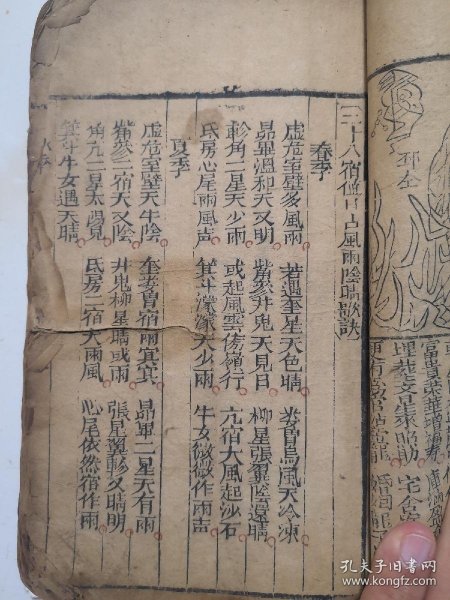 邳仝
富貴榮華增福壽
埋葬文星來照助
二十八宿值日占風雨陰晴歌訣
春季
虛危室壁多風雨 若遇奎星天色晴 婁胃烏風天冷凍
昴畢溫和天又明 觜參井鬼天見日 柳星張翼陰還晴
軫角二星天少雨 或起風雲傍嶺行 亢宿大風起沙石
氐房心尾雨風声 箕斗濛濛天少雨 牛女微微作雨声
夏季
虛危室壁天半陰 奎婁胃宿雨冥冥 昴畢二星天有雨
觜參二宿天又陰 井鬼柳星晴或雨 張星翼軫又晴明
角亢二星太陽見 氐房二宿大雨風 心尾依然宿作雨
箕斗牛女遇天晴
孔夫子旧书网
kongfz.com